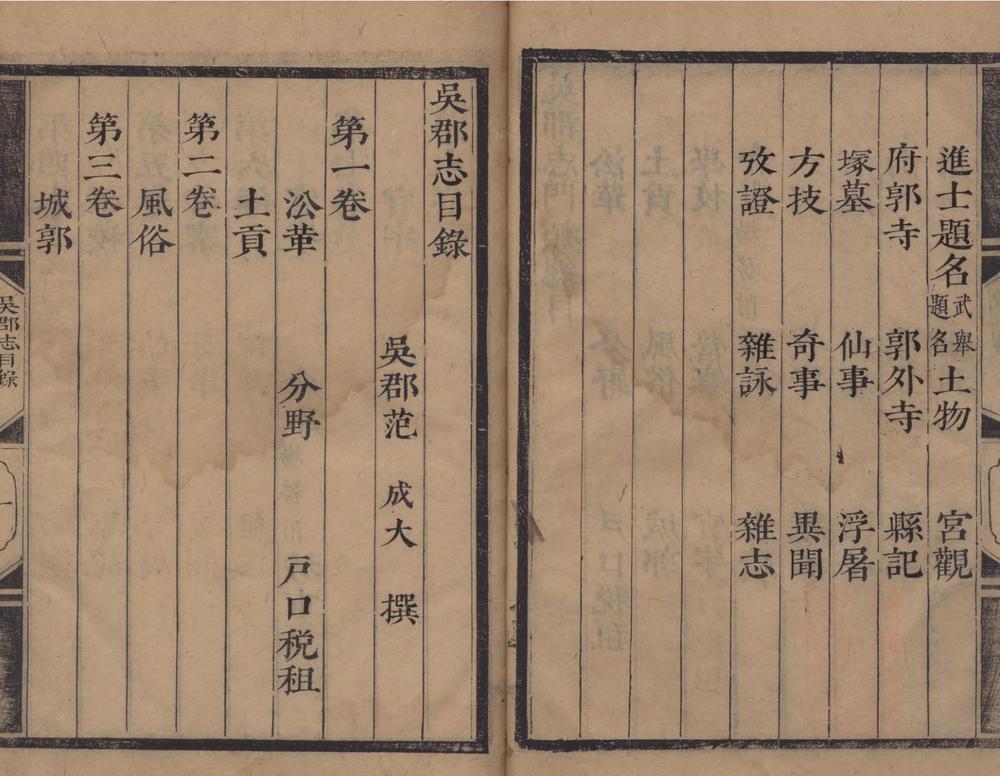 進士題名武舉題名 土物 宮觀
府郭寺 郭外寺 縣記
塚墓 仙事 浮屠
方技 奇事 異聞
攷證 雜詠 雜志
吳郡志目錄
吳郡范 成大 撰
第一卷
沿革 分野 戸口稅租
土貢
第二卷
風俗
第三卷
城郭
吳郡志目錄
一